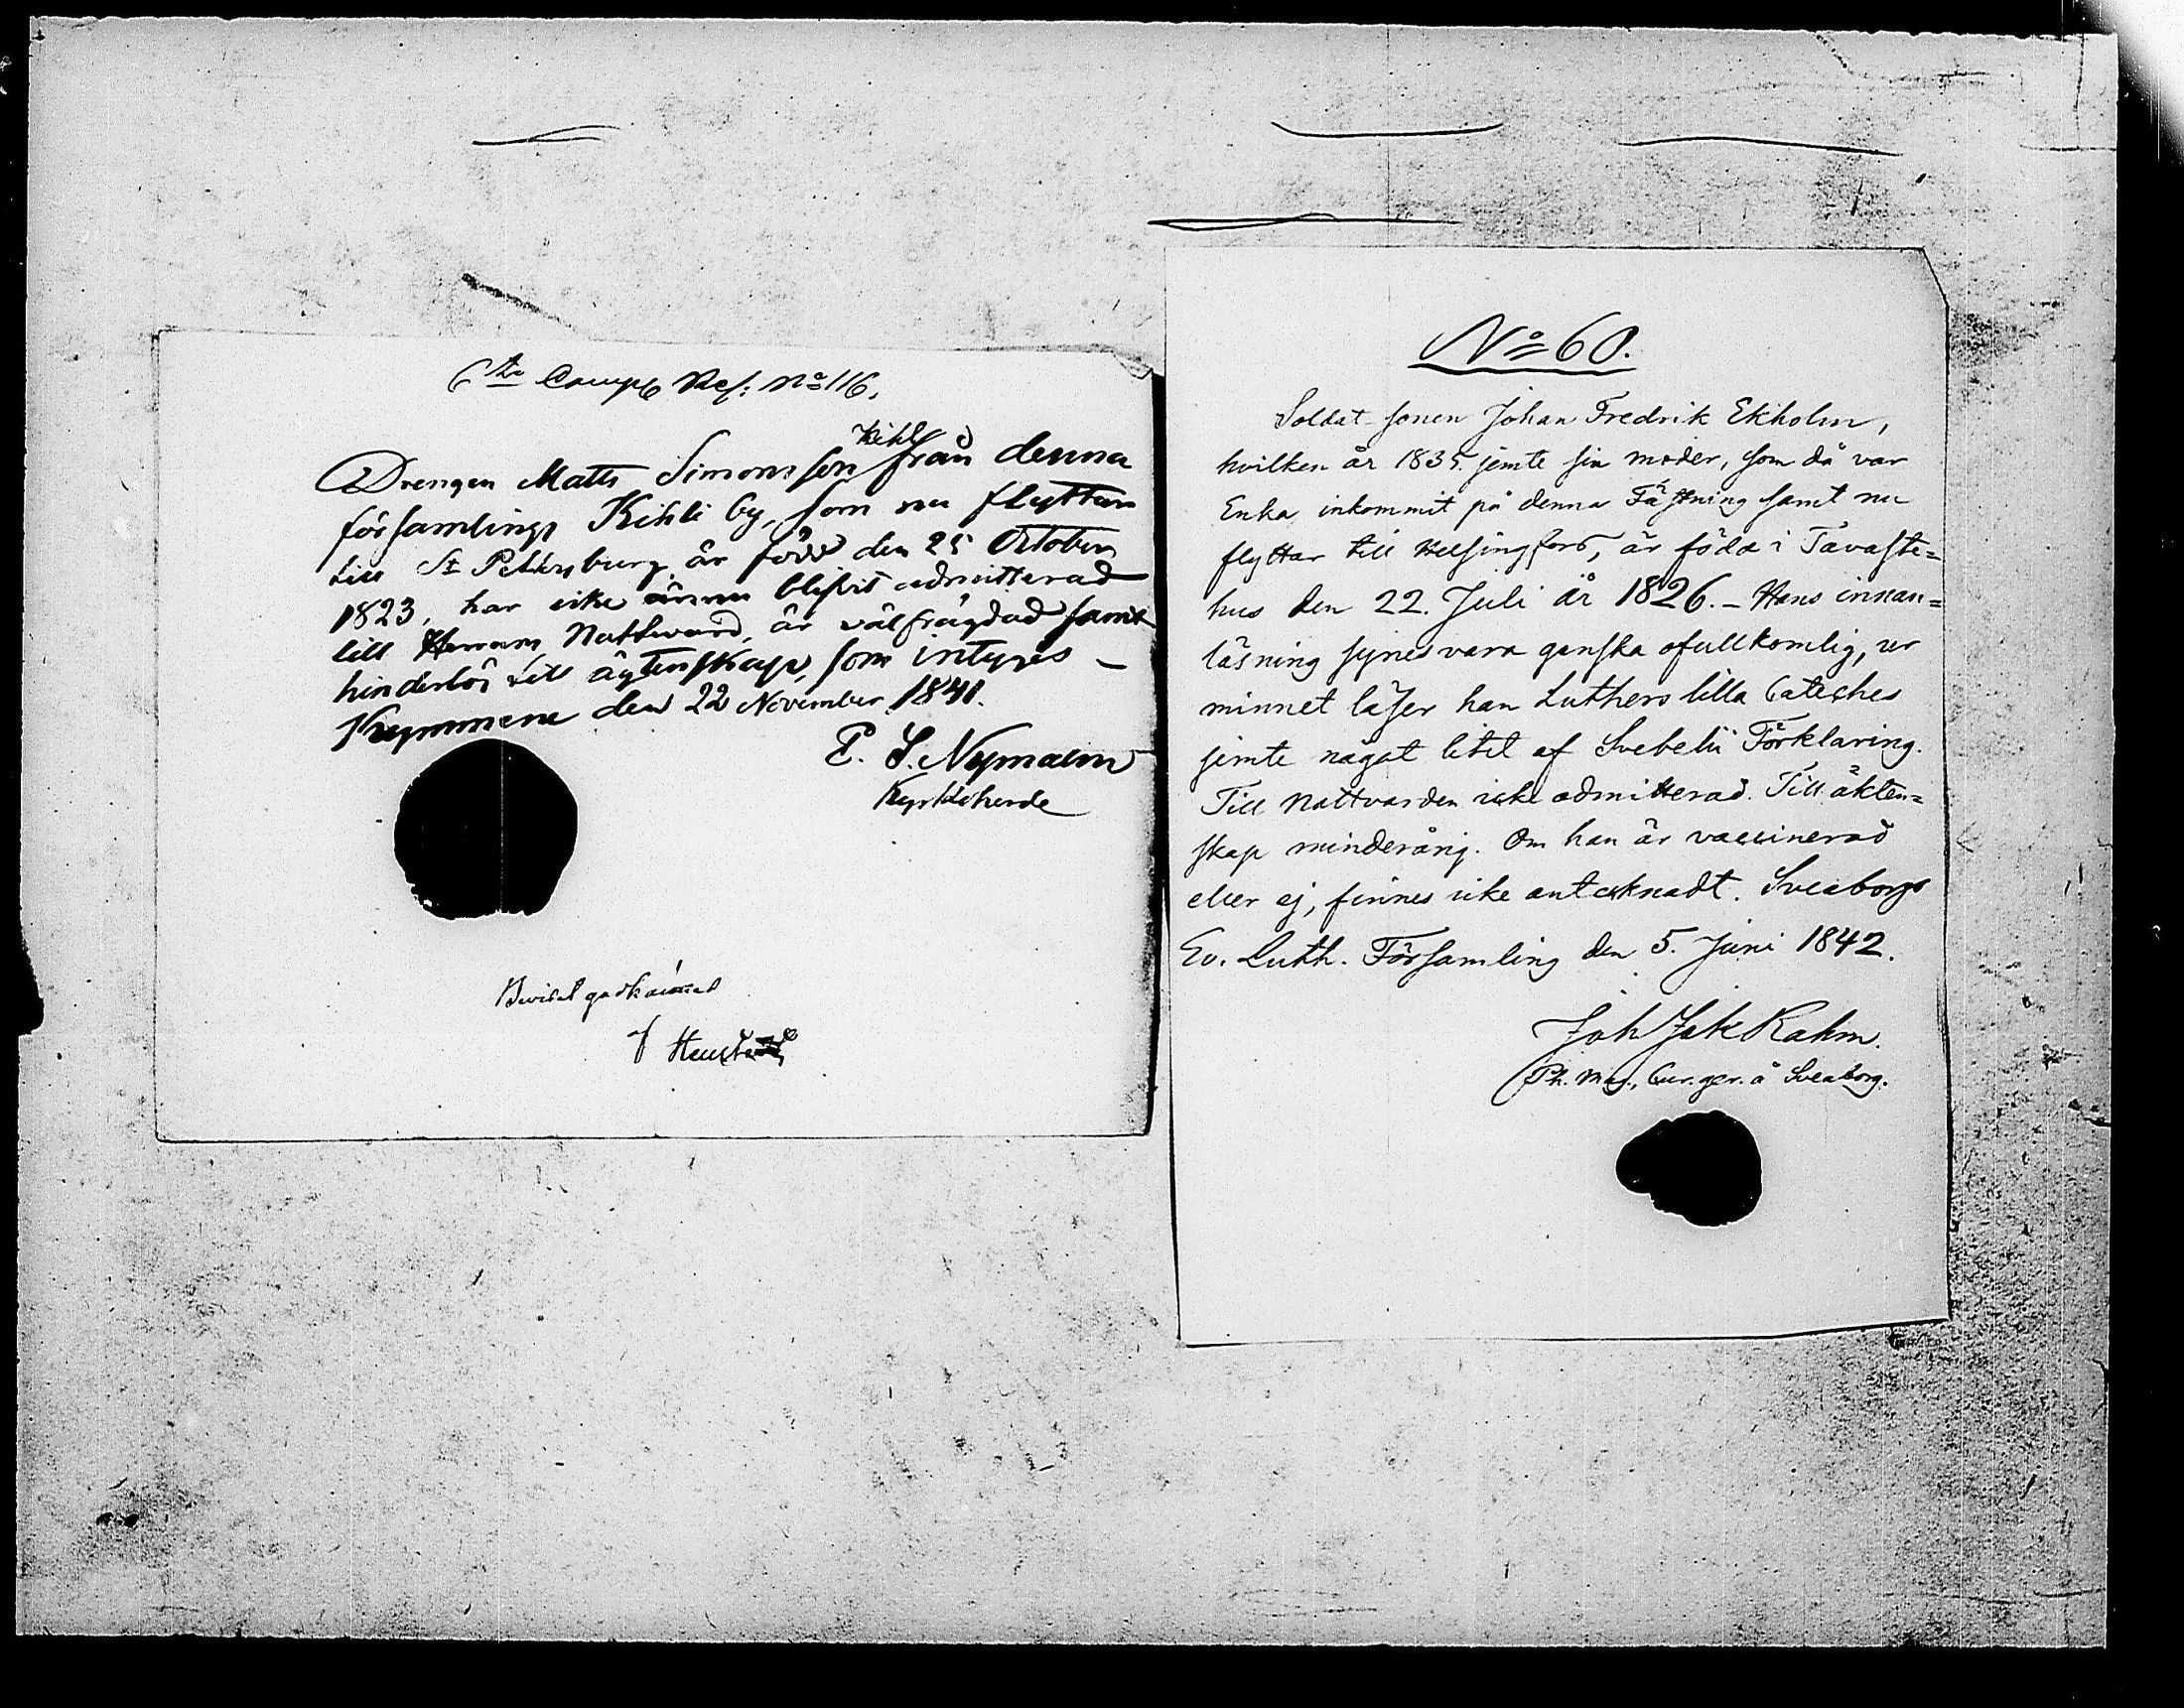 6te Comp. No 116.
Drengen Matts Simonsson Kihl från denna
församlings Kihli by, som nu flyttar
till St Petersburg, är född den 25 October
1823, har icke ännu blifvit admitterad
till Herrans Nattvard, är välfrägdad samt
hinderlös till ägtenskap, som intygas _
Kymmene den 22 November 1841.
E. S. Nyman
Kyrkoherde
Beviset godkännes
No 60.
Soldat-sonen Johan Fredrik Ekholm,
hvilken år 1835 jemte sin moder, som då var
Enka, inkommit på denna Fästning samt nu
flyttar till Helsingfors, är född i Tavaste=
hus den 22. Juli år 1826. _ Hans innan=
läsning synes vara ganska ofullkomlig, ur
minnet läser han Luthers lilla Cateches
jemte något litet af Svebelii Förklaring.
Till Nattvarden icke admitterad. Till äkten=
skap minderårig. Om han är vaccinerad
eller ej, finnes icke antecknadt. Sveaborgs
Ev. Luth. Församling den 5. Juni 1842.
Joh Jak Rahm.
Ph. Mag., Cur. ger. å Sveaborg.